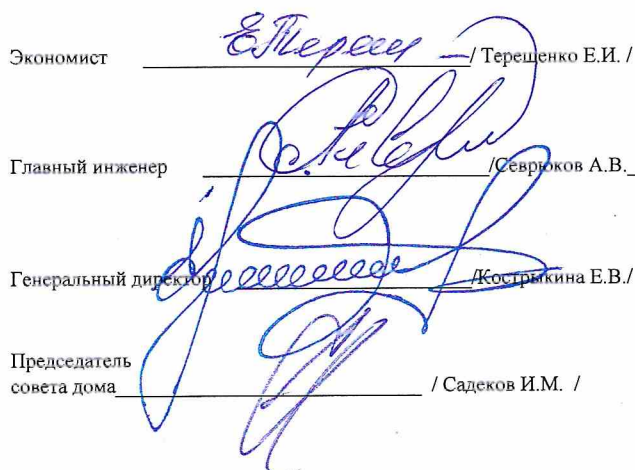 Экономист / Терещенко Е.И. /
Главный инженер /Севрюков А.В.
Генеральный директор /Кострыкина Е.В./
Председатель
совета дома / Садеков И.М. /